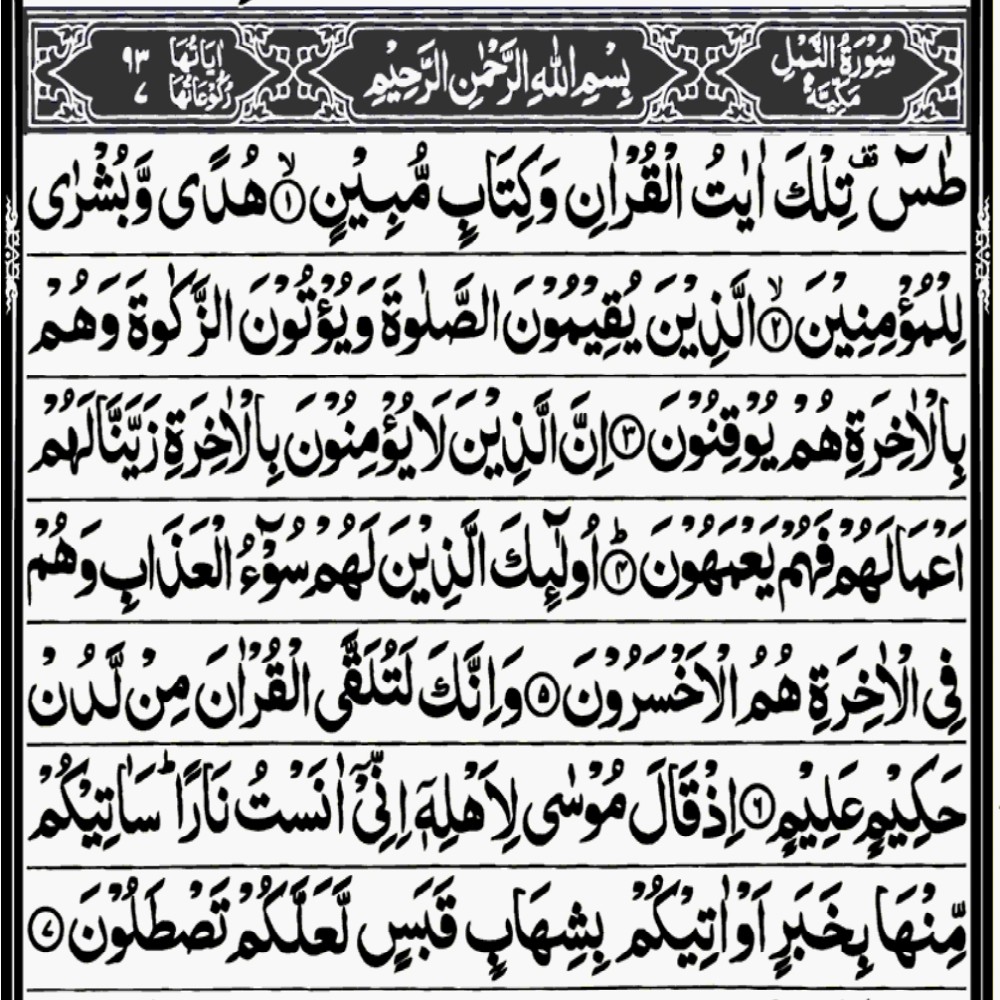 سُوْرَةُ النَّمْلِ مَكِّيَّةٌ بِسْمِ اللهِ الرَّحْمٰنِ الرَّحِيْمِ اٰيَاتُهَا ٩٣ رُكُوْعَاتُهَا ٧
طٰسٓ ࣞقف تِلْكَ اٰيٰتُ الْقُرْاٰنِ وَكِتَابٍ مُّبِيْنٍ ۙ﴿١﴾ هُدًى وَّبُشْرٰى
لِلْمُؤْمِنِيْنَ ۙ﴿٢﴾ الَّذِيْنَ يُقِيْمُوْنَ الصَّلٰوةَ وَيُؤْتُوْنَ الزَّكٰوةَ وَهُمْ
بِالْاٰخِرَةِ هُمْ يُوْقِنُوْنَ ﴿٣﴾ اِنَّ الَّذِيْنَ لَا يُؤْمِنُوْنَ بِالْاٰخِرَةِ زَيَّنَّا لَهُمْ
اَعْمَالَهُمْ فَهُمْ يَعْمَهُوْنَ ؕ﴿٤﴾ اُولٰٓئِكَ الَّذِيْنَ لَهُمْ سُوْٓءُ الْعَذَابِ وَهُمْ
فِى الْاٰخِرَةِ هُمُ الْاَخْسَرُوْنَ ﴿٥﴾ وَاِنَّكَ لَتُلَقَّى الْقُرْاٰنَ مِنْ لَّدُنْ
حَكِيْمٍ عَلِيْمٍ ﴿٦﴾ اِذْ قَالَ مُوْسٰى لِاَهْلِهٖٓ اِنِّىْٓ اٰنَسْتُ نَارًا ؕ سَاٰتِيْكُمْ
مِّنْهَا بِخَبَرٍ اَوْ اٰتِيْكُمْ بِشِهَابٍ قَبَسٍ لَّعَلَّكُمْ تَصْطَلُوْنَ ﴿٧﴾